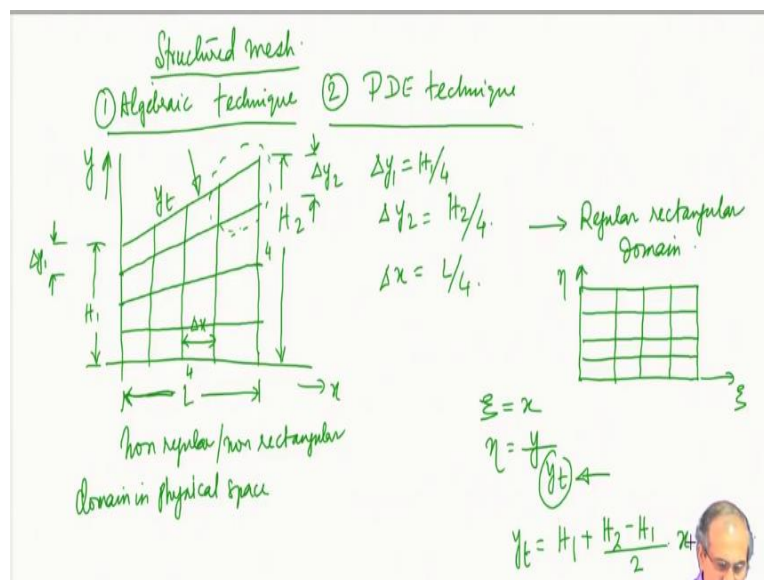 Structured mesh.
① Algebraic technique ② PDE technique
y
yt
Δy2
H2
Δy1
H1
Δx
4
4
L
x
non regular/non rectangular
domain in physical space
Δy1 = H1/4
Δy2 = H2/4.
Δx = L/4.
→ Regular rectangular
domain.
η
ξ
ξ = x
η = y/yt
yt = H1 + (H2 - H1)/2 . x+